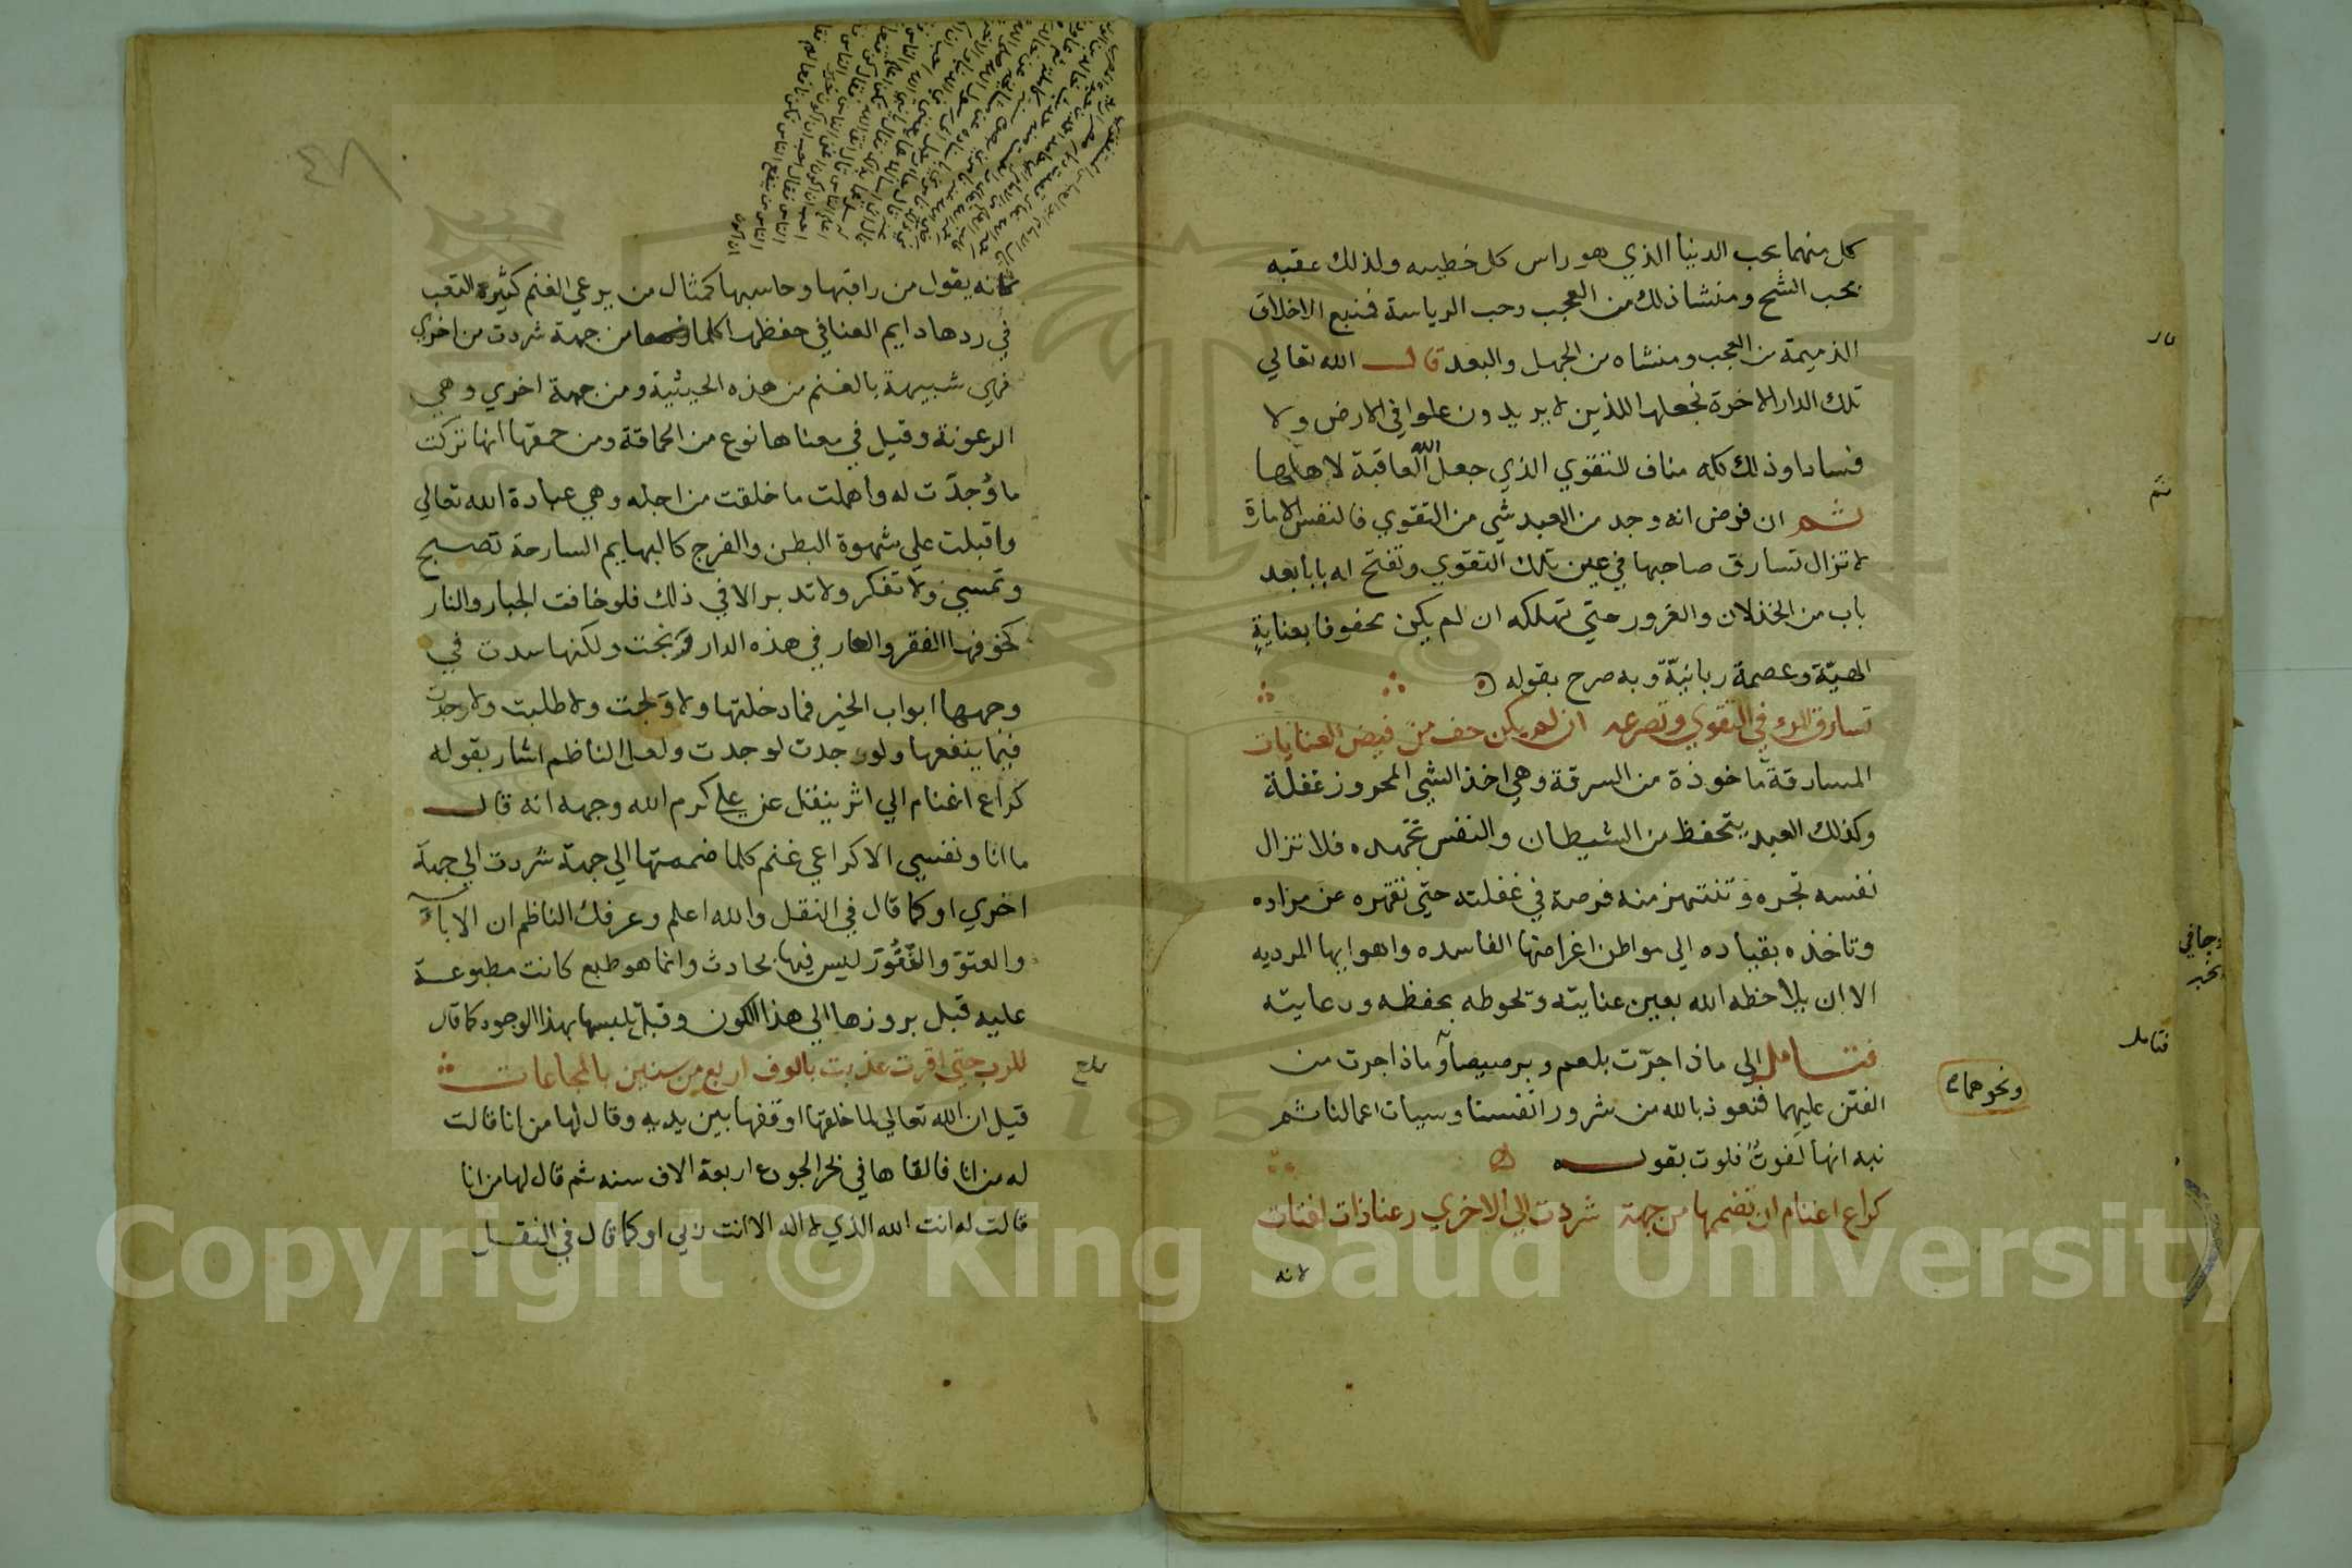 كل منهما بحب الدنيا الذي هو راس كل خطيه ولذلك عقبه
بحب الشح ومنشا ذلك من العجب وحب الرياسة فنبع الاخلاق
الذميمة من العجب ومنشاه من الجهل والبعد قال الله تعالي
تلك الدار الاخرة نجعلها للذين لا يريدون علوا في الارض ولا
فسادا وذلك كله مناف للتقوي الذي جعل الله العاقبة لاهلها
ثم ان فرض انه وجد من العبد شي من التقوي فالنفس الامارة
لا تزال تسارق صاحبها في عين تلك التقوي وتفتح له بابا بعد
باب من الخذلان والغرور حتي تهلكه ان لم يكن محفوفا بعناية
الهيّة وعصمة ربانيّة وبه صرح بقوله
تسارق المرء في التقوي وتصرعه ان لم يكن حف من فيض العنايات
المسارقة ماخوذة من السرقة وهي اخذ الشي المحروز غفلة
وكذلك العبد يتحفظ من الشيطان والنفس تجهده فلا تزال
نفسه تجره وتنتهز منه فرصة في غفلته حتي تقهره عن مراده
وتاخذه بقياده الي مواطن اغراضها الفاسده واهوايها المرديه
الا ان يلاحظه الله بعين عنايته وتحوطه بحفظه ورعايته
فتامل الي ماذا جرّت بلعم وبرصيصا وماذا جرت من
ونحوهما
الفتن عليهما فنعوذ بالله من شرور انفسنا وسيات اعمالنا ثم
نبه انها لفوت فلوت بقوله
كراع اغنام ان تضمها من جهة شردت الي الاخري رعنا ذات افتات
لانه
٤٨
كانه يقول من راقبها وحاسبها كمثال من يرعي الغنم كثيرة التعب
في ردها دايم العنا في حفظها كلما من جهة شردت من اخري
فهي شبيهة بالغنم من هذه الحيثية ومن جهة اخري وهي
الرعونة وقيل في معناها نوع من الحماقة ومن حمقها انها تركت
ما وُجدَت له واهملت ما خلقت من اجله وهي عبادة الله تعالي
واقبلت علي شهوة البطن والفرج كالبهايم السارحة تصبح
وتمسي ولا تفكر ولا تدبر الا في ذلك فلو خافت الجبار والنار
كخوفها الفقر والعار في هذه الدار نجت ولكنها سدت في
وجهها ابواب الخير فما دخلتها ولا ولجت ولا طلبت ولا وجدت
فيما ينفعها ولو وجدت لوجدت ولعل الناظم اشار بقوله
كراع اغنام الي اثر ينقل عن علي كرم الله وجهه انه قال
ما انا ونفسي الا كراعي غنم كلما ضممتها الي جهة شردت الي جهة
اخري او كما قال في النقل والله اعلم وعرفك الناظم ان الاباة
والعتوّ والفُتُورَ ليس فيها بحادث وانما هو طبع كانت مطبوعة
عليه قبل بروزها الي هذا الكون وقبل تلبسها بهذا الوجود كما قال
للرب حتي اقرت عذبت بالوف اربع من سنين بالمجاعات
قيل ان الله تعالي لما خلقها اوقفها بين يديه وقال لها من انا قالت
له من انا فالقاها في بحر الجوع اربعة الاف سنه ثم قال لها من انا
قالت له انت الله الذي لا اله الا انت ربي او كما قال في النقل
Copyright © King Saud University